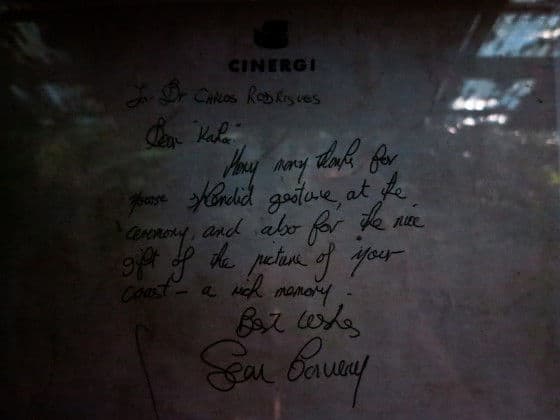 CINERGI
To Dr. CARLOS RODRIGUES
Dear "Kaká"
Many many thanks for
your splendid gesture, at the
ceremony, and also for the nice
gift of the picture of your
coast - a rich memory.
Best Wishes
Sean Connery